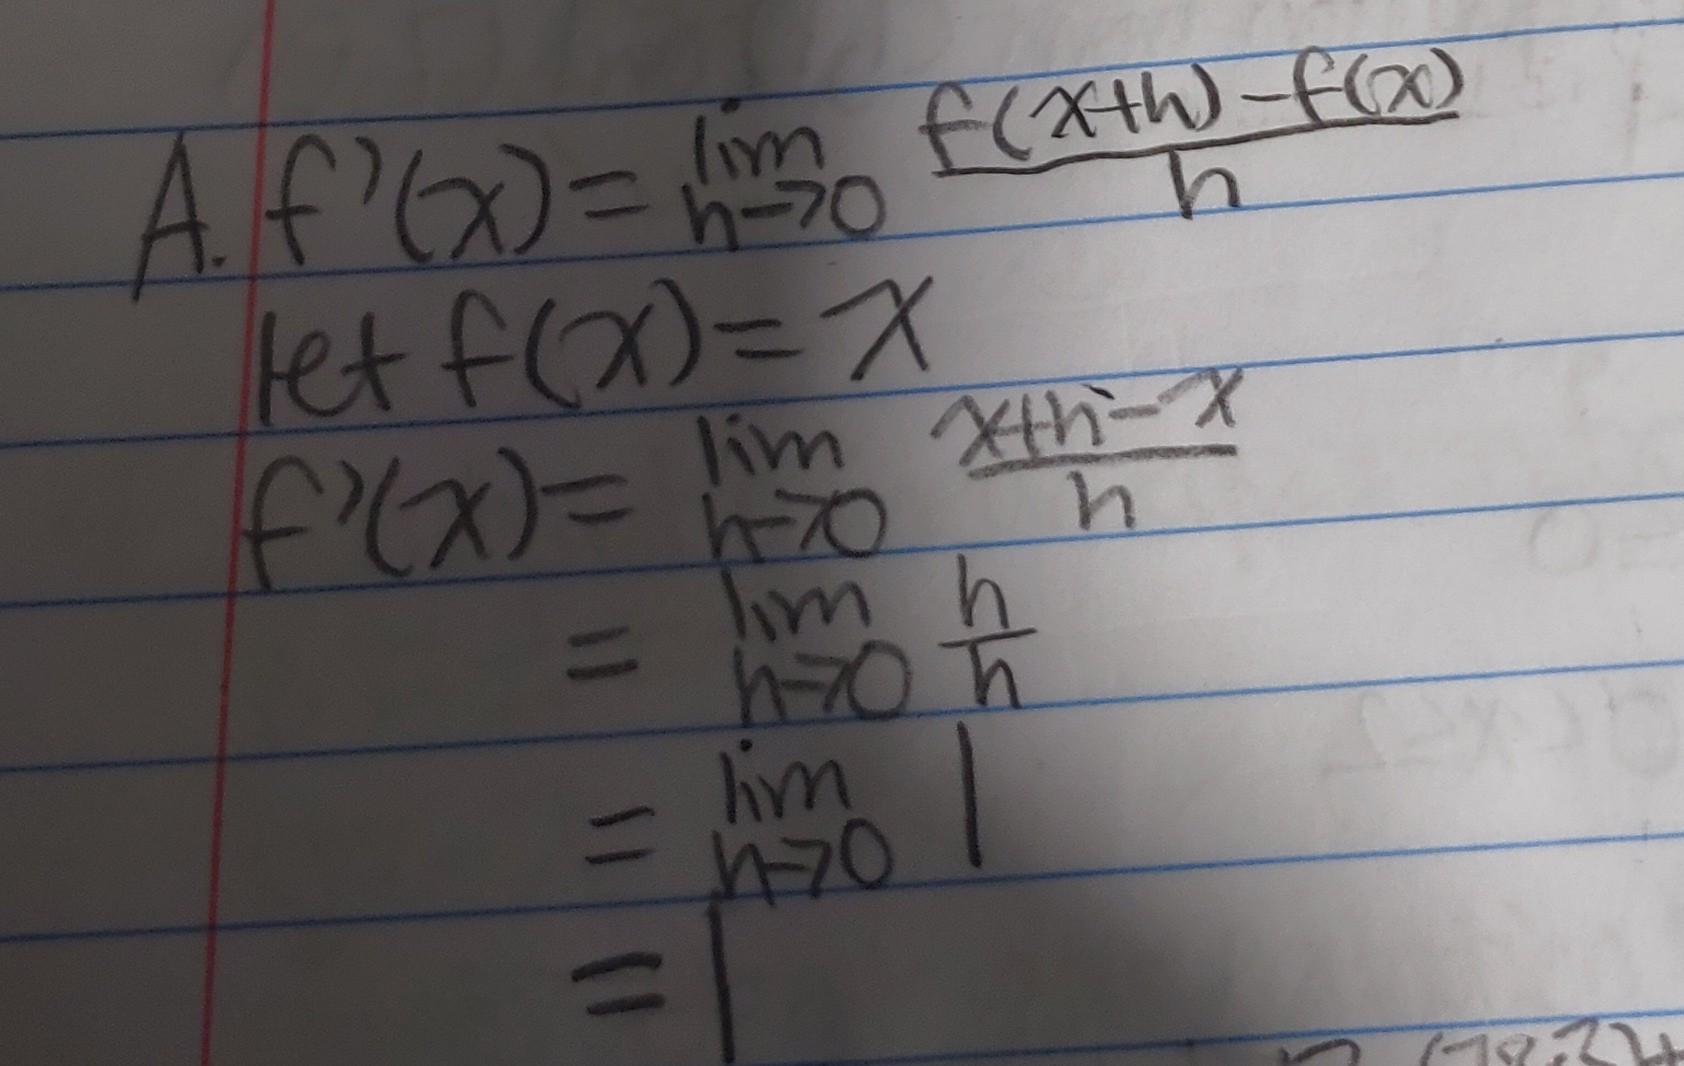 A. f'(x) = lim h→0 (f(x+h) - f(x))/h
let f(x) = x
f'(x) = lim h→0 (x+h-x)/h
= lim h→0 h/h
= lim h→0 1
= 1